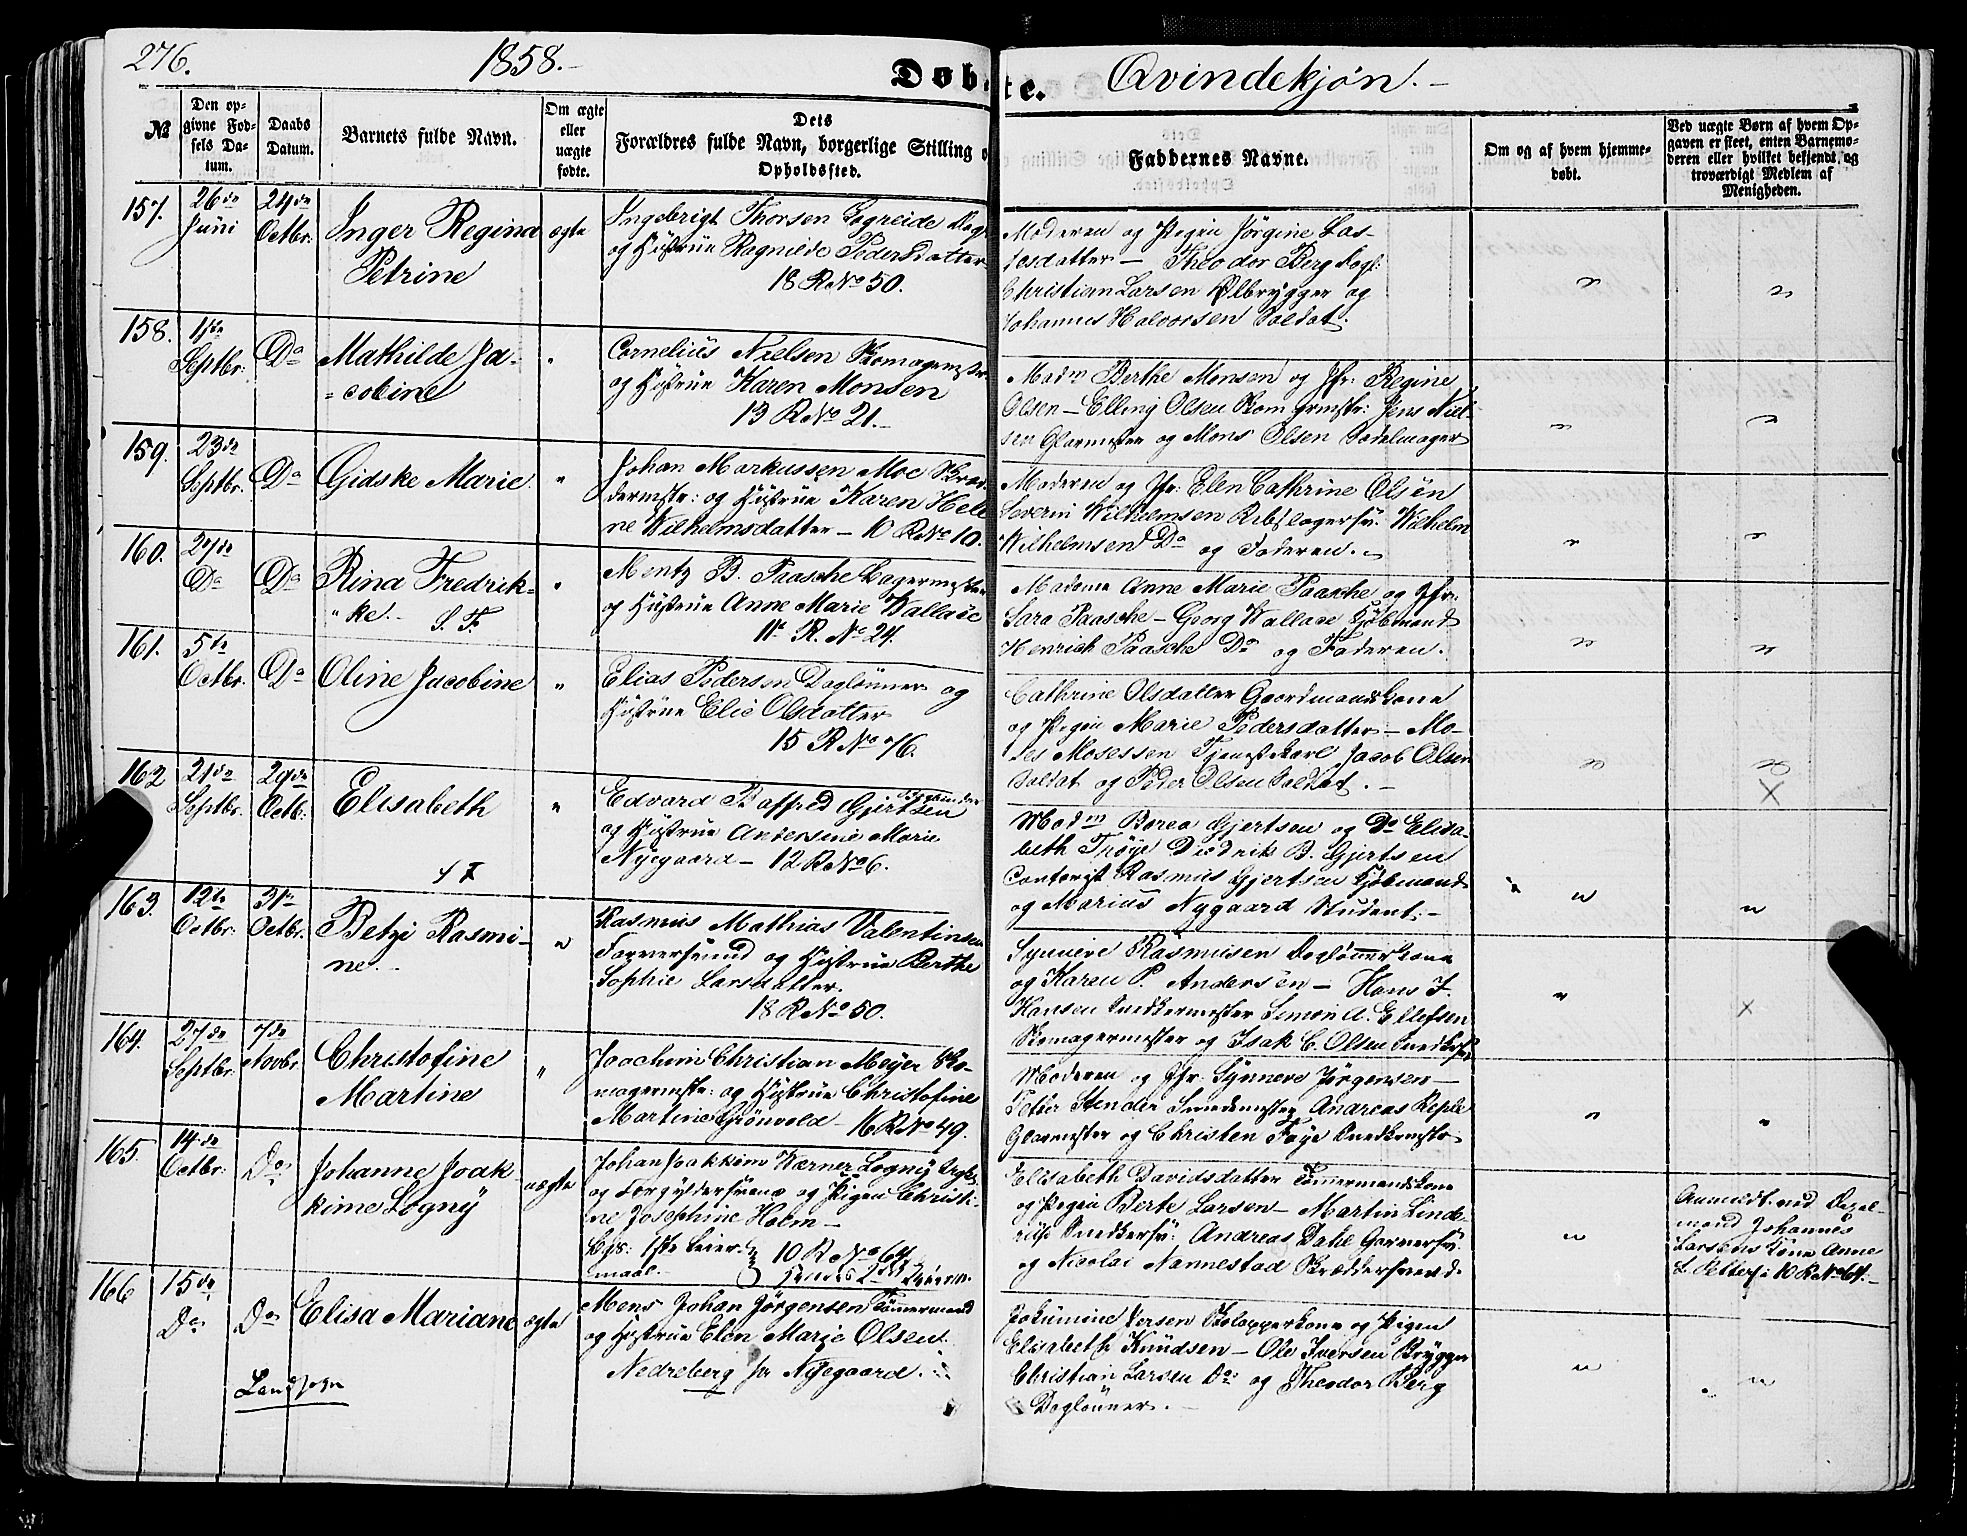 276.
1858.-
Døbte.
Qvindekjön.-
№
Den op-
givne Fød-
sels Da-
tum.
Daabs
Datum.
Barnets fulde Navn.
Om ægte
eller
uægte
fødte.
Dets
Forældres fulde Navn, borgerlige Stilling o
Opholdssted.
Faddernes Navne.
Om og af hvem hjemme-
døbt.
Ved uægte Børn af hvem Op-
gaven er skeet, enten Barnemo-
deren eller hvilket bekjendt og
troværdigt Medlem af
Menigheden.
157.
26de
Juni
24de
Octbr.
Inger Regina
Petrine
ægte
Ingebrigt Thorsen
og Hustrue Ragnilde PedersDatter
18 R No 50.
Moderen og Pigen Jörgine Las-
sesdatter — Theodor Berg Dagl:
Christian Larsen Ølbrygger og
Johannes Halvorsen Soldat.
158.
1ste
Septbr:
Do
Mathilde Ja-
=cobine
"
Cornelius Nielsen Skomagermester
og Hustrue Karen Monsen
13 R No 21.-
Madm Berthe Monsen og Jfr: Regine
Olsen — Elling Olsen Skomgrmstr: Jens Niel-
sen Glarmester og Mons Olsen Sadelmager
159.
23de
Septbr.
Do
Gidske Marie
"
Johan Markussen Moe Skræd
dermstr: og Hustrue Karen Hele
ne Wilhelmsdatter — 10 R No 10.
Moderen og Jfr: Elen Cathrine Olsen
Severin Wilhelmsen Rebslagersv. Wilhelm
Wilhelmsen Do og Faderen.
160.
27de
Do
Do
Rina Fredrik-
"ke.. S. F.
"
Mentz B. Paasche Lagermester
og Hustrue Anne Marie Wallace
11te R. No 24.
Madame Anne Marie Paasche og Jfr:
Sara Paasche — Georg Wallace Kjöbmand
Henrick Paasche Do og Faderen.
161.
5te
Octbr.
Do
Oline Jacobine
"
Elias Pedersen Daglönner og
Hustrue Elie Olsdatter
15 R No 76.
Cathrine Olsdatter Gaardmandskone
og Pigen Marie Pedersdatter — Mo-
ses Mosessen Tjenestkarl Jacob Olsen
Soldat og Peder Olsen Soldat.-
162
21de
Septbr.
29de
Octb.
Elisabeth
"
Edvard Gjertsen Bogbinder
og Hustrue Andersine Marie
Nyegaard — 12 R No 6.
Madm Borea Gjertsen og Do Elisa-
beth Tröye Diedrik B. Gjertsen
Contorist Rasmus Gjertsen Kjöbmand
og Marius Nygaard Student.-
163.
12te
Octbr:
31te
Octbr.
Betzi Rasmi-
ne..
"
Rasmus Mathias Valentinsen
Farversvend og Hustrue Berthe
Sophie Larsdatter.
18 R No 50.
Synneve Rasmusen Daglönnerkone
og Karen P. Andersen — Hans J.
Hansen Snedkermester Simon A. Ellefsen
Skomagermester og Isak C. Olsen
164.
27de
Septbr.
7de
Novbr.
Christofine
Martine
"
Joachim Christian Meyer Sko-
magermstr: og Hustrue Christofine
Martine Grönvold — 16 R No 49.
Moderen og Jfr: Synneve Jörgensen —
Peter Stender Smedemester Andreas Reple
Glarmester og Christen Föye Snedkermstr:
165.
14de
Octbr:
Do
Johanne Joak
kime Logny
uægte
Johan Joakkim Kærner Logny
og Forgyldersvend og Pigen Christi-
ne Josephine Holm —
Bgs: 1ste Leier-
maal.-
10 R No 64
Elisabeth Davidsdatter Tömmermandskone
og Pigen Berte Larsen — Martin Linde-
Snedkersv: Andreas Dahl Garversv.
og Nicolai Nannestad Skræddersvend.
Anmeldt ved
mand Johannes
Larsens Kone Anne
10 R No 64.-
166
15de
Do
Do
Elisa Mariane
ægte
Mons Johan Jörgensen Tömmermand
og Hustrue Elen Marie Olsen
Nedreberg pr Nyegaard.
Landsogn
Jakumine Iversen og Pigen
Elisabeth Knudsen — Ole Iversen Brygger
Christian Larsen Do og Theodor Berg
Daglönner.-